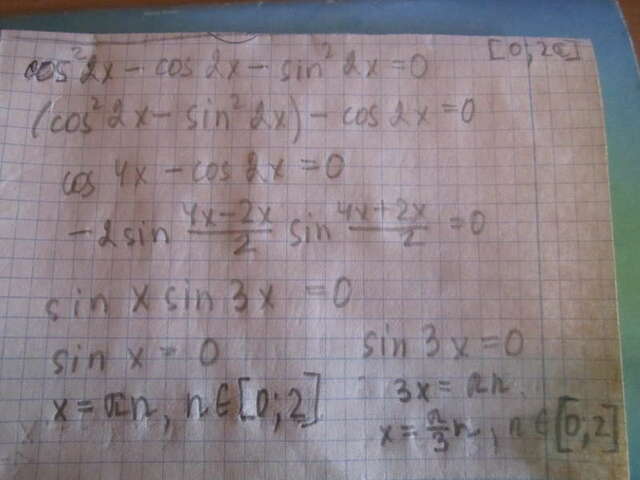 [0; 2π]
cos²2x - cos 2x - sin²2x = 0
(cos²2x - sin²2x) - cos 2x = 0
cos 4x - cos 2x = 0
-2 sin (4x-2x)/2 sin (4x+2x)/2 = 0
sin x sin 3x = 0
sin x = 0 sin 3x = 0
x = πn, n∈[0;2] 3x = πn
x = π/3 n, n∈[0;2]